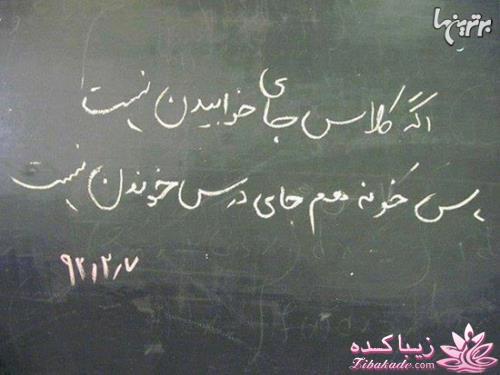 برترینها
اگه کلاس جای خوابیدن نیست
پس خونه هم جای درس خوندن نیست
۹۲/۲/۷
زیباکده
Zibakade.com